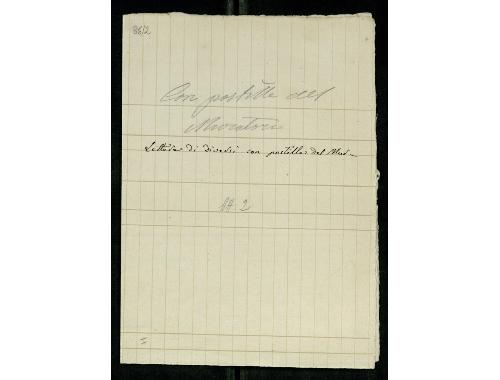 86/2
Con postille del
Muratori
Lettere di diversi con postille del Mur
N 2